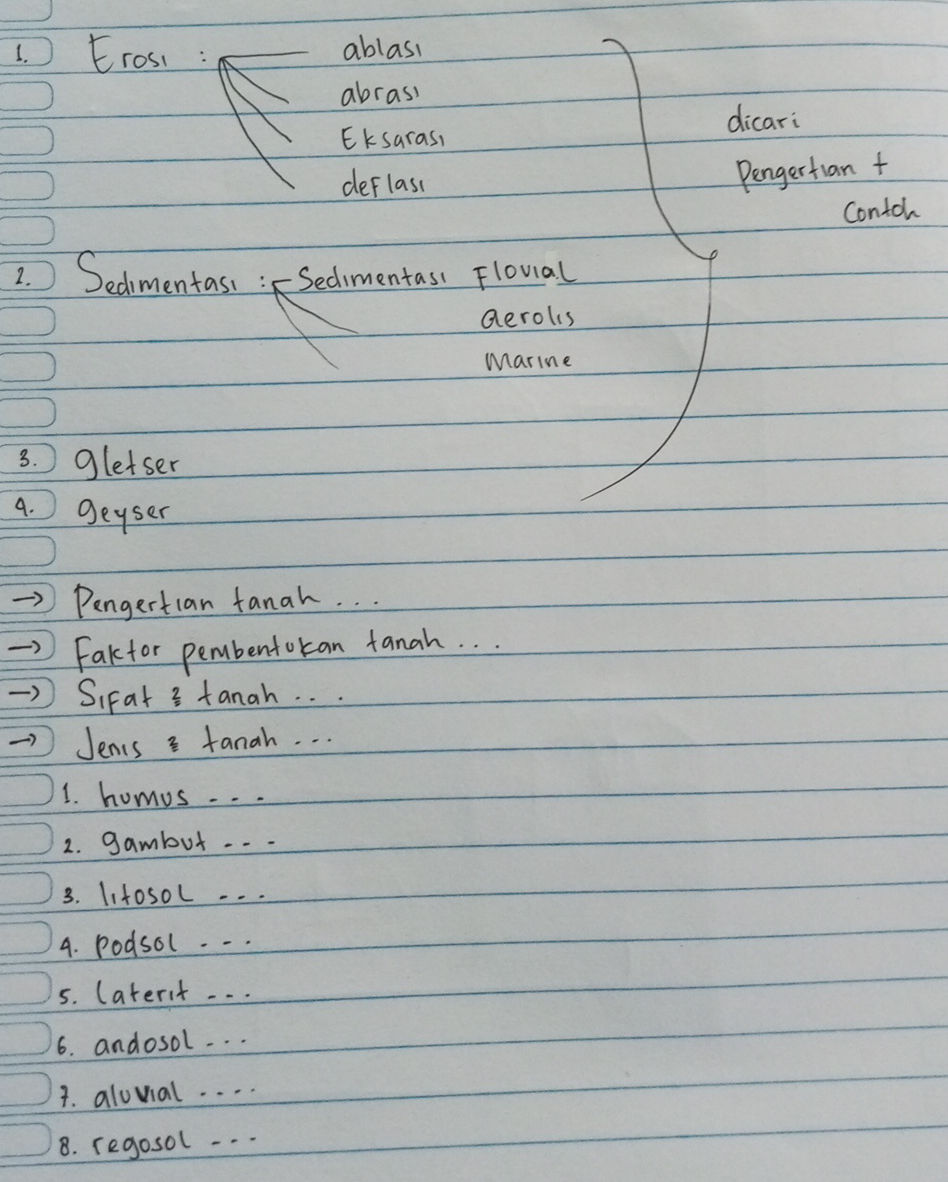 1. Erosi : ablasi
abrasi
Eksarasi
deflasi
dicari
Pengertian +
Contoh
2. Sedimentasi : Sedimentasi Fluvial
aerolis
marine
3. gletser
4. geyser
→ Pengertian tanah ...
→ Faktor pembentukan tanah ...
→ Sifat 2 tanah ...
→ Jenis 2 tanah ...
1. humus ...
2. gambut ...
3. litosol ...
4. podsol ...
5. laterit ...
6. andosol ...
7. aluvial ....
8. regosol ...